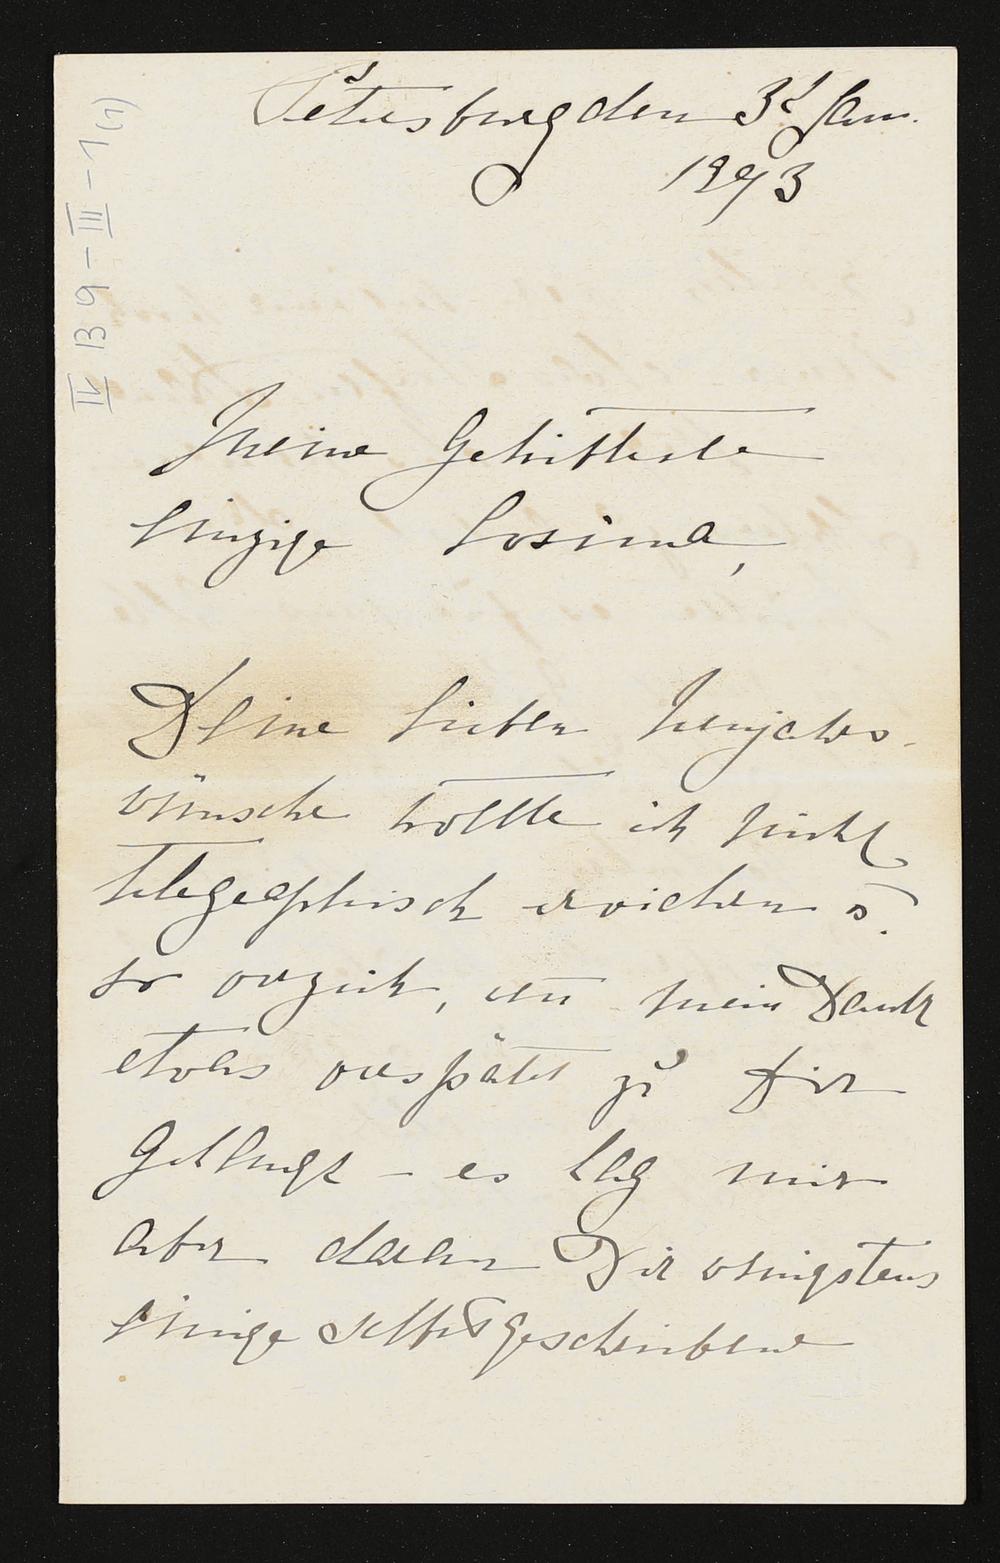 IV B 9 - III - 1 (1)
Petersburg den 3t Jan.
1893
Meine Geliebteste
einzige Cosima,
Deine lieben Neujahrs-
wünsche wollte ich nicht
telegraphisch erwidern u.
so verzieh, wenn mein Dank
etwas verspätet zu Dir
gelangt – es lag mir
aber daran Dir wenigstens
einige selbstgeschriebene